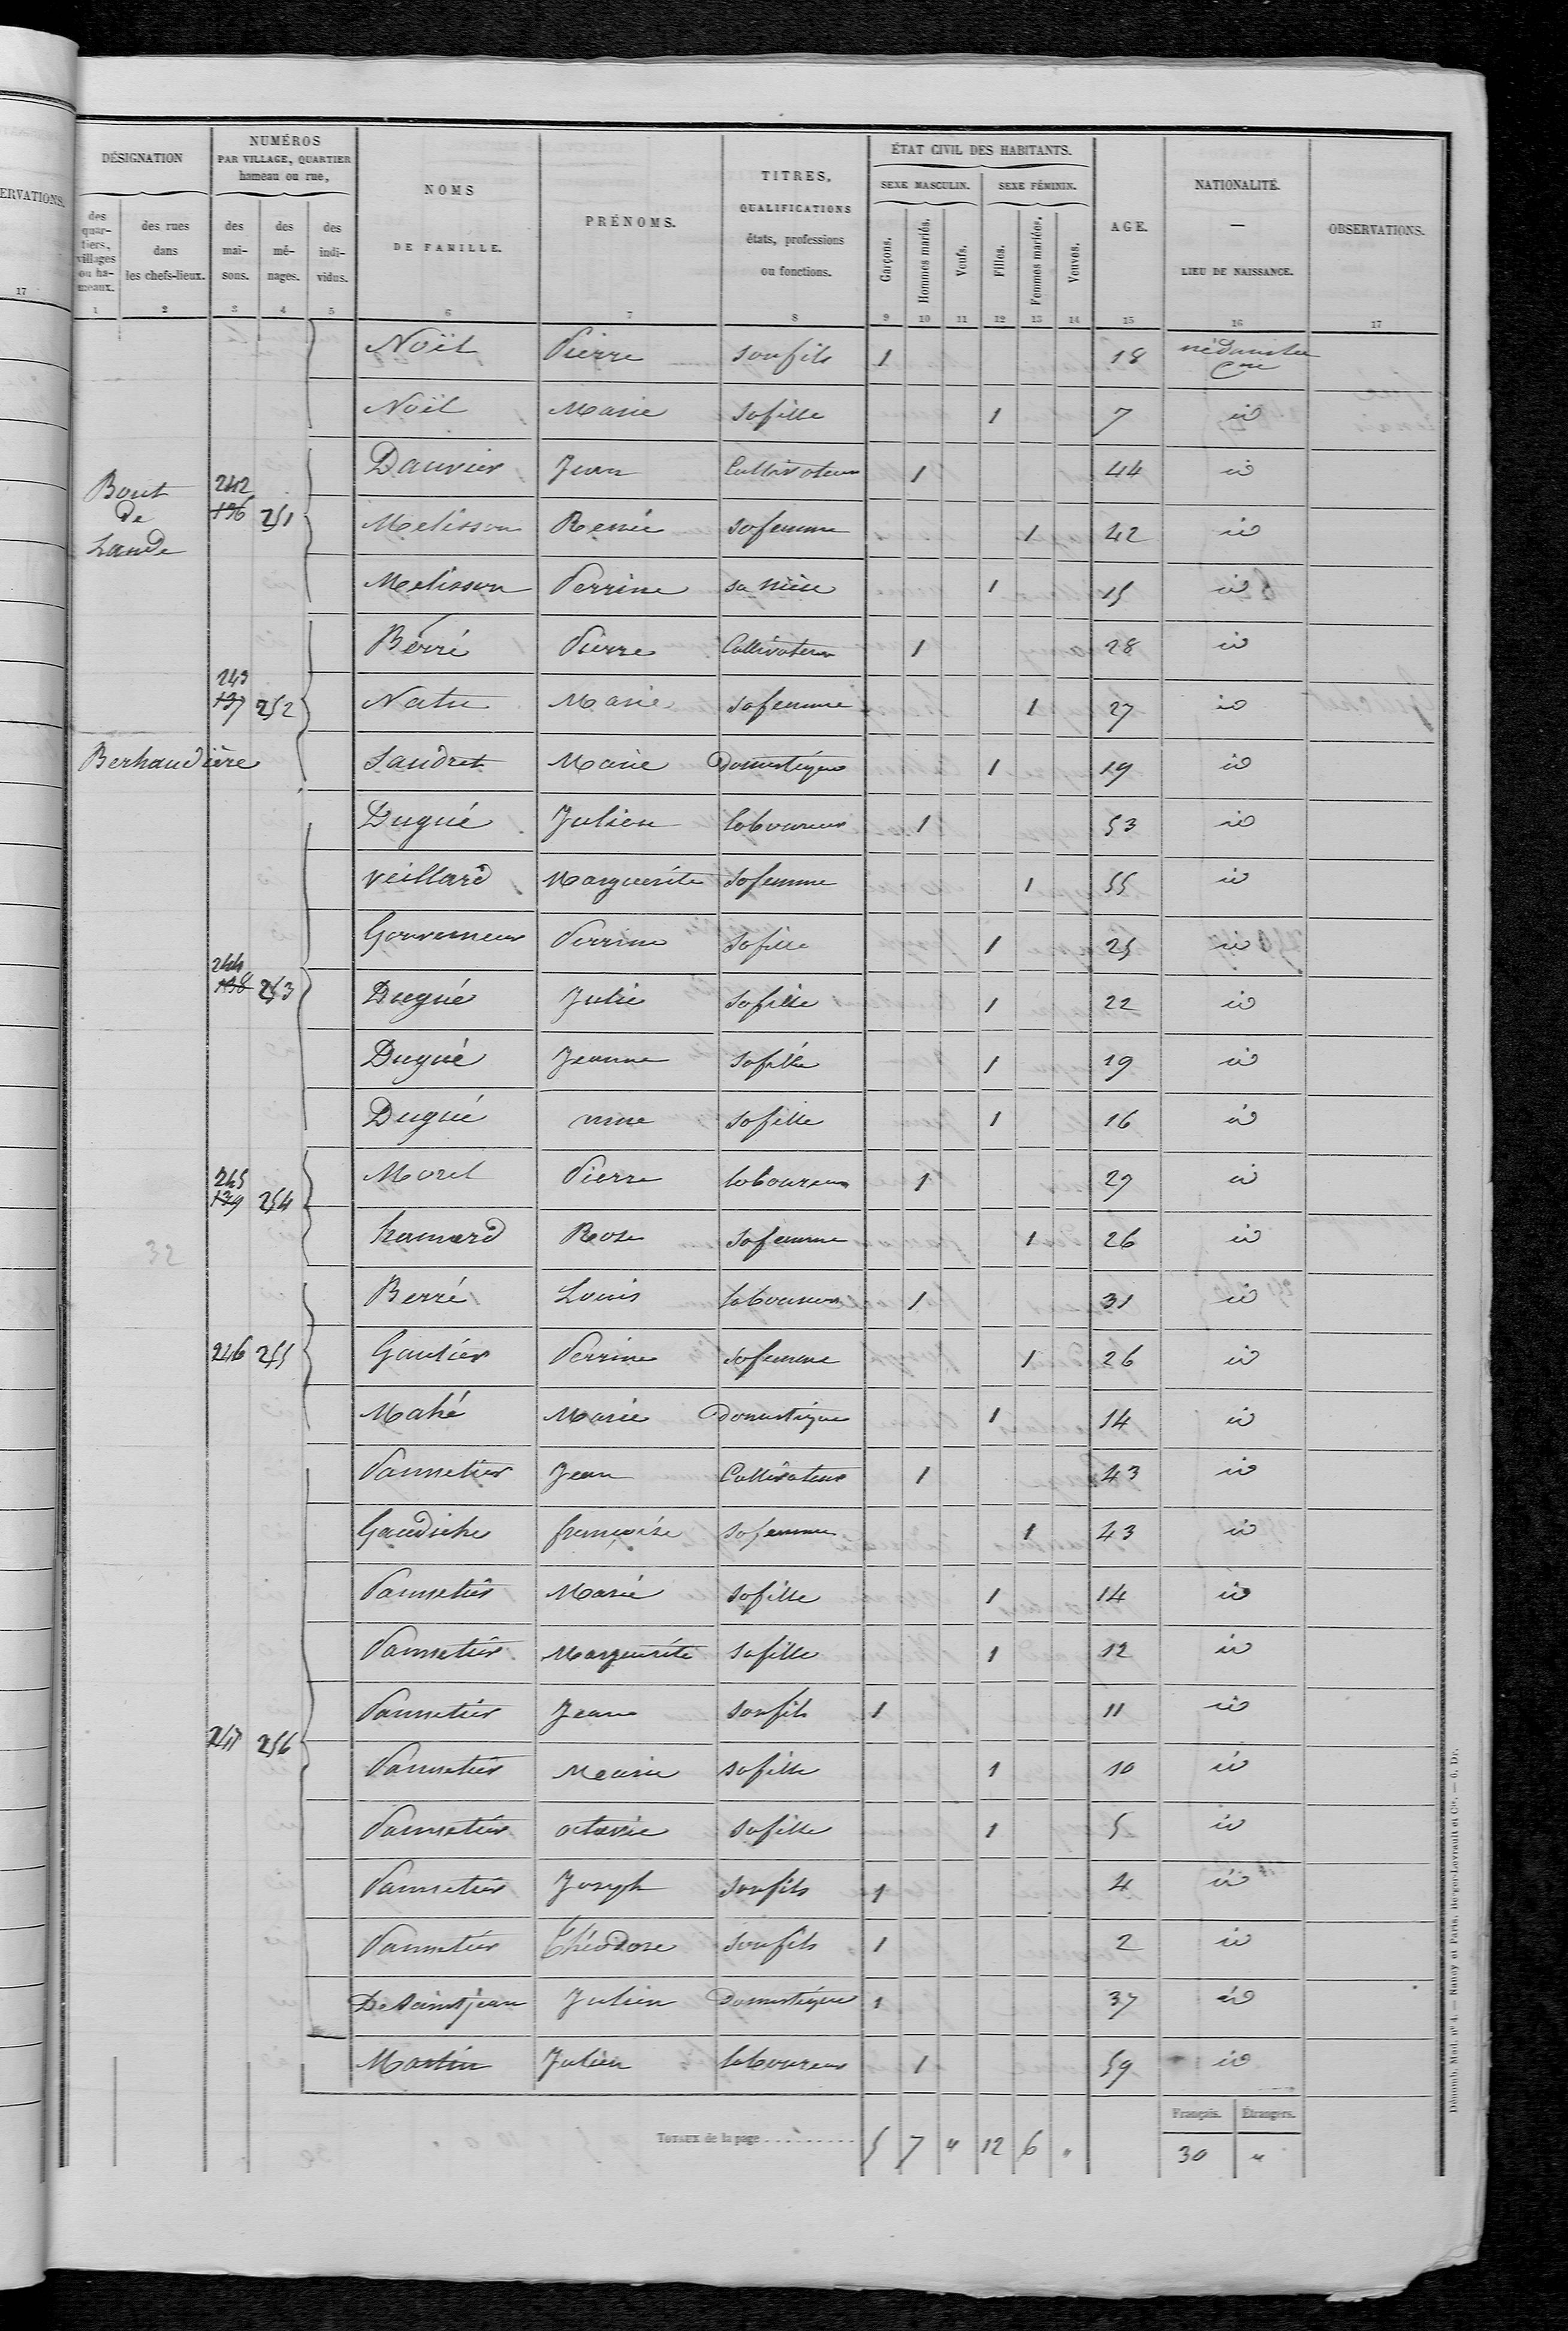 ERVATIONS.
17
DÉSIGNATION
NUMÉROS
PAR VILLAGE, QUARTIER
hameau ou rue,
NOMS
DE FAMILLE.
PRÉNOMS.
TITRES,
QUALIFICATIONS
états, professions
ou fonctions.
ÉTAT CIVIL DES HABITANTS.
SEXE MASCULIN. SEXE FÉMININ.
AGE.
NATIONALITÉ.
—
LIEU DE NAISSANCE.
OBSERVATIONS.
des quar- tiers, villages ou ha- meaux.
des rues dans les chefs-lieux.
des mai- sons.
des mé- nages.
des indi- vidus.
Garçons. Hommes mariés. Veufs. Filles. Femmes mariées. Veuves.
1 2 3 4 5 6 7 8 9 10 11 12 13 14 15 16 17
Noël Pierre son fils 1 18 né dans la Cne
Noël Marie sa fille 1 7 id
Bout de Lande
242 136 251
Dauvier Jean Cultivateur 1 44 id
Melisson Renée sa femme 1 42 id
Melisson Perrine sa nièce 1 15 id
Berré Pierre Cultivateur 1 28 id
243 137 252
Natu Marie sa femme 1 27 id
Berhaudière
Landret Marie Domestique 1 19 id
Dugué Julien laboureur 1 53 id
Veillard Marguerite sa femme 1 55 id
Gouverneur Perrine sa fille 1 25 id
244 138 253
Dugué Julie sa fille 1 22 id
Dugué Jeanne sa fille 1 19 id
Dugué sa fille 1 16 id
245 139 254
Morel Pierre laboureur 1 29 id
hamard Rose sa femme 1 26 id
32
Berré Louis laboureur 1 31 id
246 255
Gautier Perrine sa femme 1 26 id
Mahé Marie Domestique 1 14 id
Pannetier Jean Cultivateur 1 43 id
Gaudiche françoise sa femme 1 43 id
Pannetier Marie sa fille 1 14 id
Pannetier Marguerite sa fille 1 12 id
Pannetier Jean son fils 1 11 id
247 256
Pannetier Marie sa fille 1 10 id
Pannetier octavie sa fille 1 5 id
Pannetier Joseph son fils 1 4 id
Pannetier Théodore son fils 1 2 id
De Saint jean Julien Domestique 1 37 id
Martin Julien laboureur 1 59 id
Français. Étrangers.
TOTAUX de la page . . . . . . . . . 5 7 " 12 6 " 30 "
Dénomb. Mod. nº 4. — Nancy et Paris, Berger-Levrault et Cie. — 6. Dr.